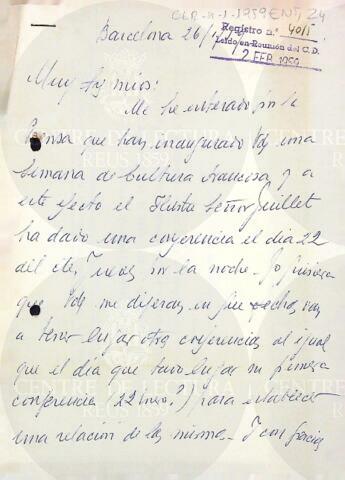 CLR-2-1-1959 ENT, 24
Registro n.º 4011
Leído en Reunión del C.D.
2 FEB 1959
Barcelona 26/1/59
Muy Sres míos:
Me he enterado por la
Prensa que han inaugurado Vds una
Semana de Cultura francesa, y a
este efecto el Ilustre Señor Guillet
ha dado una conferencia el dia 22
del cte. Jueves por la noche. Yo quisiera
que Vds me dijeran en que fechas van
a tener lugar otras conferencias al igual
que el día que tuvo lugar su primera
conferencia (22 ener.?) para establecer
una relación de las mismas. Y con gracias
CENTRE DE LECTURA
REUS 1859